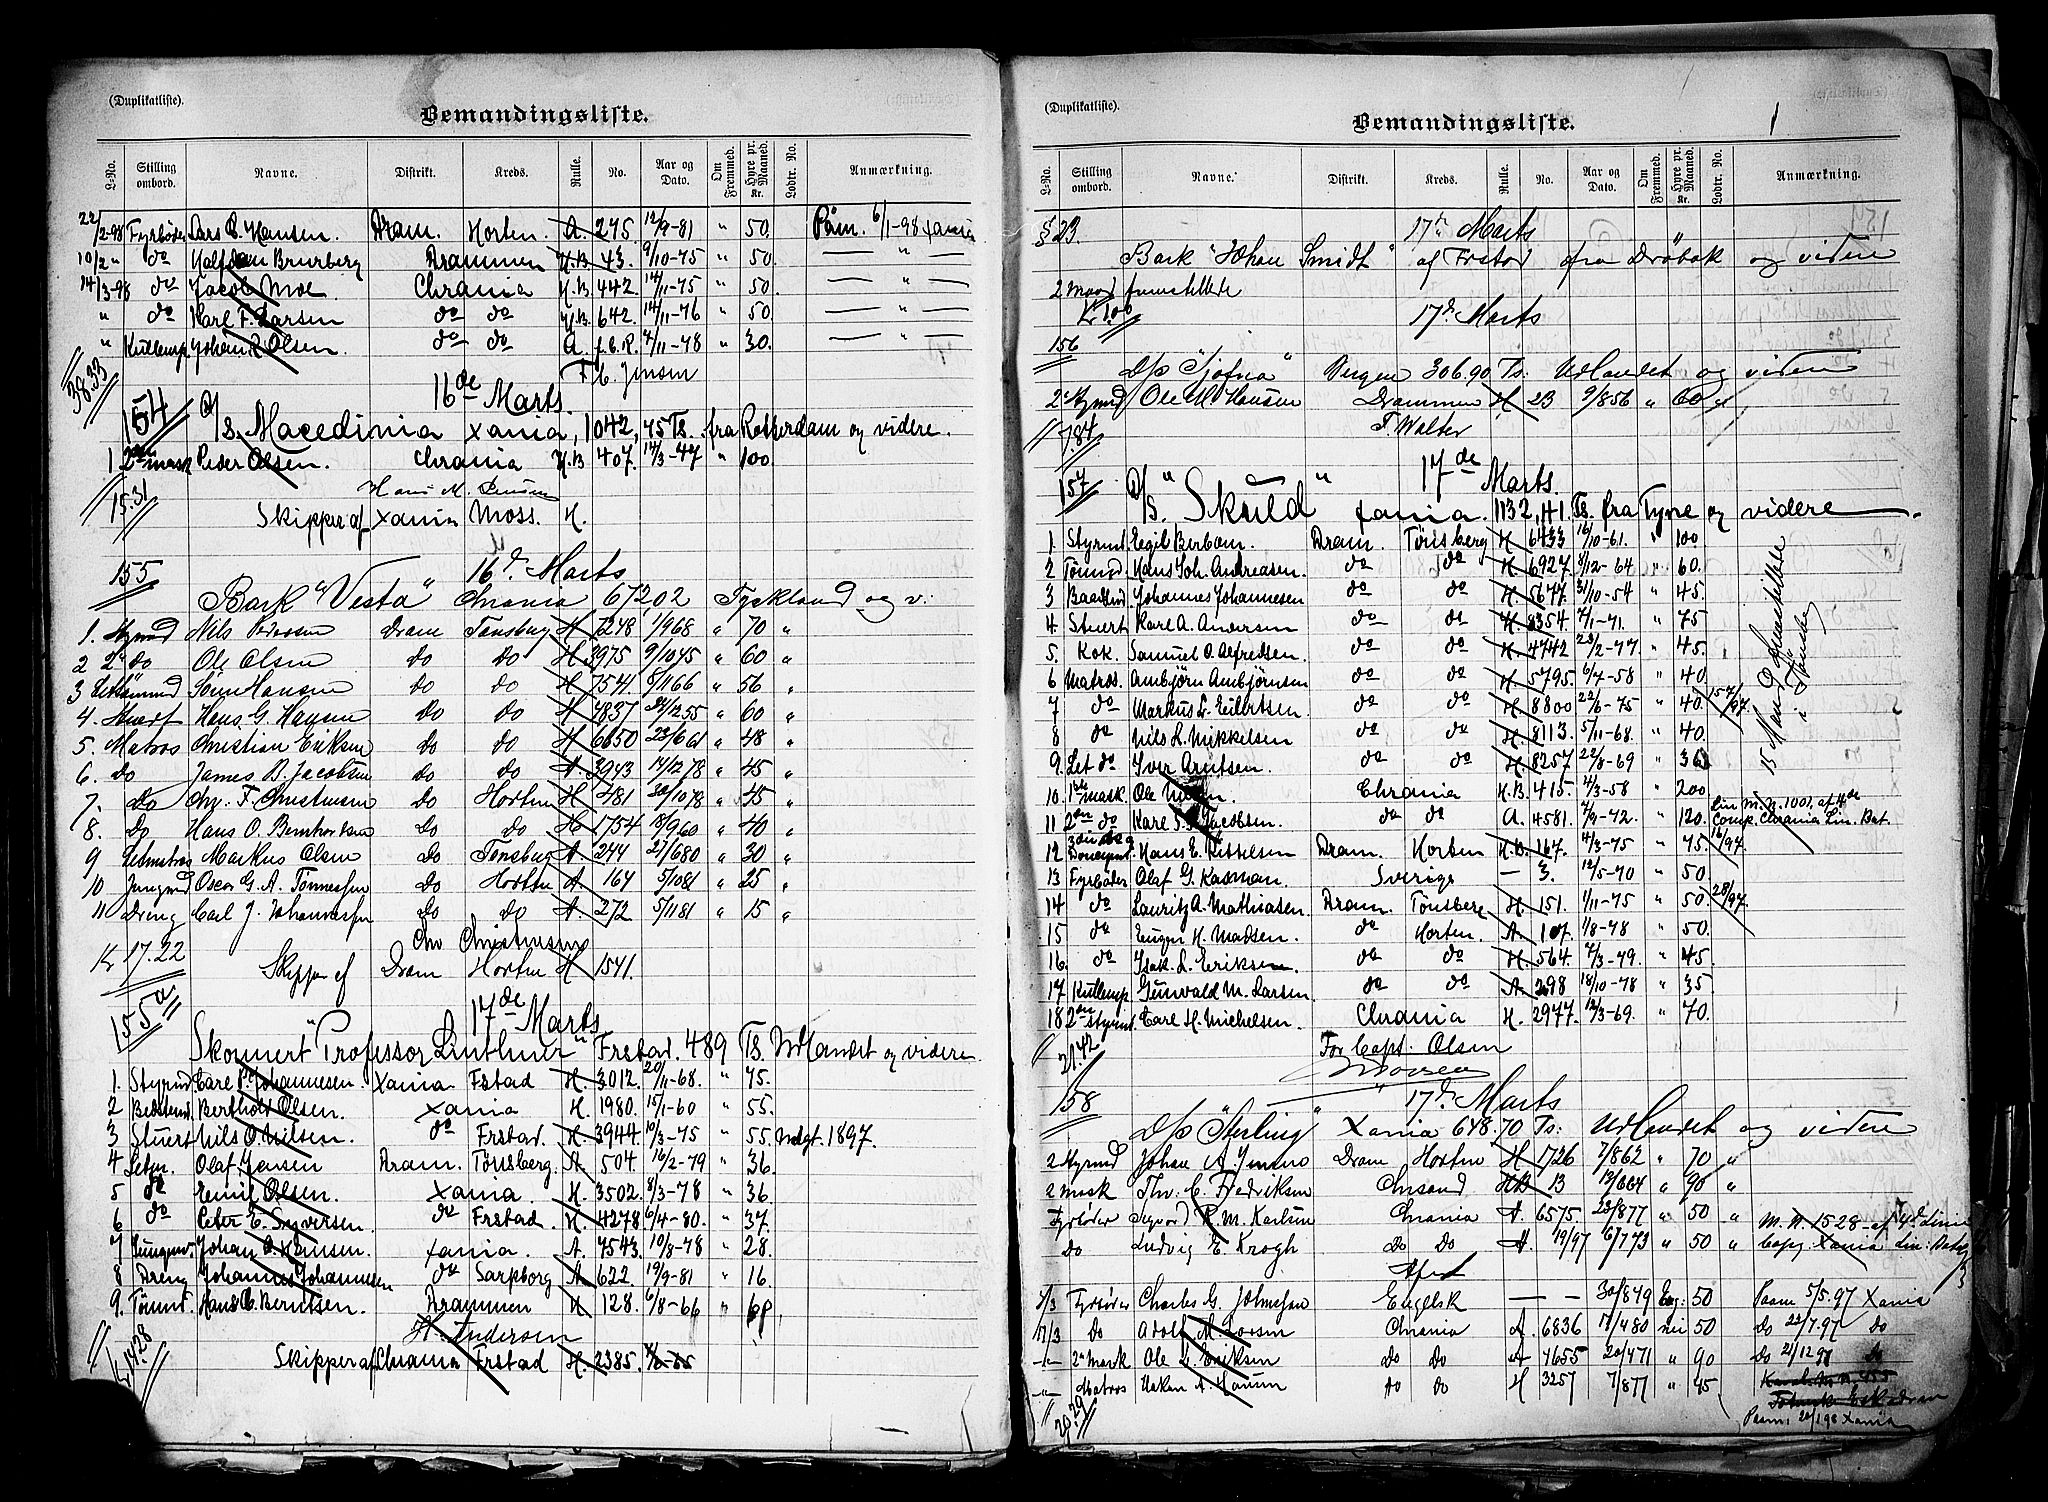 (Duplikatliste).
Bemandingsliste.
L-No. Stilling ombord. Navne. Distrikt. Kreds. Rulle. No. Aar og Dato. Om Fremmed. Hyre pr. Maaned. Kr. Lodtr. No. Anmærkning.
22/2-98 Fyrböder Lars C. Hansen. Dram. Horten. A. 275 12/9-81 " 50. Paam. 6/1-98 Xania
10/2 " do Halfdan Brurberg Drammen H.B. 43. 9/10-75 " 50. — " —
14/3-98 do Jacob Moe Chrania H.B. 442. 14/11-75 " 50. — " —
" do Karl F. Larsen do do H.B. 642. 14/11-76 " 50 — " —
" Kullemp. Johan R. Olsen. do do A. f.C.R. 7/11-78 " 30. — " —
38.33 F. C. Jensen
154 16de Marts.
D/S. Macedinia Xania, 1042,75 Ts. fra Rotterdam og videre.
1 2den mask Peder Olsen. Chrania H.B 407. 14/3-47 " 100.
15.31 Hans M. Jensen
Skipper af Xania Moss. H.
155 16de Marts
Bark "Vesta" Chrania 672 02 Tyskland og v.
1. Styrmd Nils Pedersen Dram Tønsberg H 7248 1/968 " 70 "
2 2' do Ole Olsen do do H 3975 9/1045 " 60 "
3 Letsømmd Sören Hansen do do H 7541 8/1166 " 56 "
4. Stuert Hans G. Hansen do do H 4837 24/1255 " 60 "
5. Matros Christian Eriksen do do H 6650 23/661 " 48 "
6. do James B. Jacobsen do do A. 3943 14/1278 " 45 "
7. do Chr. F. Christensen do Horten H 481 30/1078 " 45 "
8. do Hans O. Bernhordsen do do H 1754 18/960 " 40 "
9 Letmatros Markus Olsen do Tønsberg A 244 27/680 " 30 "
10 Jungmd Oscar G. A. Tønnessen do Horten A. 164 5/1081 " 25 "
11 Dreng Carl J. Johannessen do do A 272 5/1181 " 15 "
Kr 17.22 Chr Christensen
Skipper af Dram Horten H 1541.
155a 17de Marts
Skonnert "Professor Linthner" Frstad. 489 Ts. Udlandet og videre.
1. Styrmd. Carl P. Johannesen. Xania Fstad H. 3012. 20/11-68. " 75.
2 Bedstmd. Berthold Olsen. Xania H. 1980. 15/1-60 " 55.
3 Stuert Nils O. Nilsen. do Frstad. H. 3944. 10/3-75 " 55. Udgt. 1897.
4 Letm. Olaf Jensen Dram. Tönsberg. A. 504. 16/2-79 " 36.
5 do Emil Olsen. Xania. H. 3502. 8/3-78 " 36.
6 do Peter E. Syversen. do Frstad. H. 4278 6/4-80. " 37.
7 Jungmd. Johan O. Hansen. Xania. A. 7543. 10/8-78 " 28.
8 Dreng Johannes Johannesen do Sarpborg A. 622. 19/9-81 " 16.
9. Tömmd. Hans C. Berntsen. Drammen H 128. 6/8-66 " 60.
Kr 14.28 H. Andersen
Skipper af Chrania Frstad H. 2385.
(Duplikatliste).
Bemandingsliste. 1
L-No. Stilling ombord. Navne. Distrikt. Kreds. Rulle. No. Aar og Dato. Om Fremmed. Hyre pr. Maaned. Kr. Lodtr. No. Anmærkning.
§ 23. 17de Marts
Bark "Johan Smidt" af Frstad fra Dröbak og videre
2 mand fremstillede
Kr 1.00 17de Marts
156
D/S "Sjofna" Bergen 306.90 Ts: Udlandet og videre
2' Styrmd Ole M Hansen Drammen H 23 9/856 " 60
7.84 F. Walter
157 17de Marts.
D/S. "Skuld" Xania. 1132,41. Ts. fra Tyne og videre.
1. Styrmd. Egil Berbom. Dram. Tönsberg H. 6433 16/10-61. " 100
2 Tömmd. Hans Joh. Andreasen. do do H. 6927. 8/12-64 " 60.
3 Baadsmd. Johannes Johannesen do do H. 5677. 31/10-54 " 45.
4. Stuert Karl A. Andersen do do H. 8354 7/1-71. " 75
5. Kok. Samuel O. Alfredsen. do do H. 4742 23/2-77. " 45.
6 Matros. Ambjörn Ambjörnsen do do H. 5795. 6/7-58 " 40.
7 do Markus L. Eilertsen. do do H. 8800 22/6-75 " 40. 157/97.
8 do Nils L. Mikkelsen do do H. 8113. 5/11-68. " 40.
9. Let do Iver Arntsen. do do H. 8257 22/8-69 " 36
15 Mand fremstillede i Tönsberg
10. 1ste mask. Ole Chrania H.B. 415. 2/3-58 " 200
11 2den do Karl S. Jacobsen. do do A. 4581. 7/9-72. " 120. Lin. M. N. 1001. af 4de Comp. Chrania Lin. Bat.
12 3die do og Donkeymd. Hans E. Kittelsen Dram. Horten H.B. 167. 4/3-75 " 75. 16/97.
13 Fyrböder Olaf G. Kasman. Sverige — 3. 12/5-70 " 50.
14 do Lauritz A. Mathiasen. Dram. Tönsberg H. 151. 1/11-75 " 50. 28/97.
15 do Eugen H. Madsen. do Horten. A. 107. 1/8-78 " 50.
16. do Isak. L. Eriksen. do do H. 564. 7/3-79. " 45
17 Kullemp Gunvald M. Larsen. do do A. 298 18/10-78 " 35
18 2den Styrmd. Carl H. Michelsen. Chrania H. 2977. 12/3-69. " 70.
21.42 For Capt. Olsen
158 17de Marts
D/S "Sterling" Xania 648.70 Ts: Udlandet og videre
2 Styrmd Johan A. Dram Horten H 1726 7/862 " 70 "
2 Mask Thv. C. Fredriksen Chrsand HB 13 12/664 " 90 "
Fyrböder Sigvard R. M. Karlsen Chrania A. 6575. 23/877 " 50 " M. N. 1528 af 4de Linie
do Ludvig E. Krogh do do A. 19/97 6/773 " 50 " Comp Xania Lin: Bat.
Afsk
5/3 Fyrböder Charles G. Johnessen Engelsk — — 30/849 Eng: 50 Paam 5/5.97 Xania
17/3 do Adolf M. Larsen Chrania A. 6836 17/480 nei 50 do 22/7.97 do
— 2' Mask Ole L. Eriksen do do A 4655 20/471 " 90 do 21/1297 do
— Matros Haken A. Hansen do do H 3257 7/877 " 45
Paam: 20/198 Xania
20.29